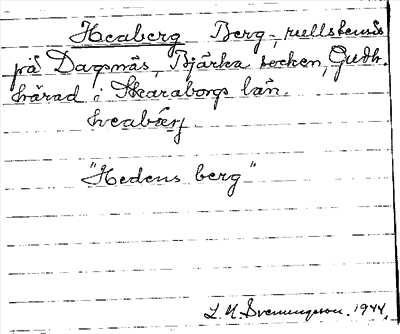 Heaberg Berg, rullstensås
på Dagsnäs, Bjärka socken, Gudh.
härad i Skaraborgs län.
heabærj
"Hedens berg"
L. M. Svenungsson. 1944.